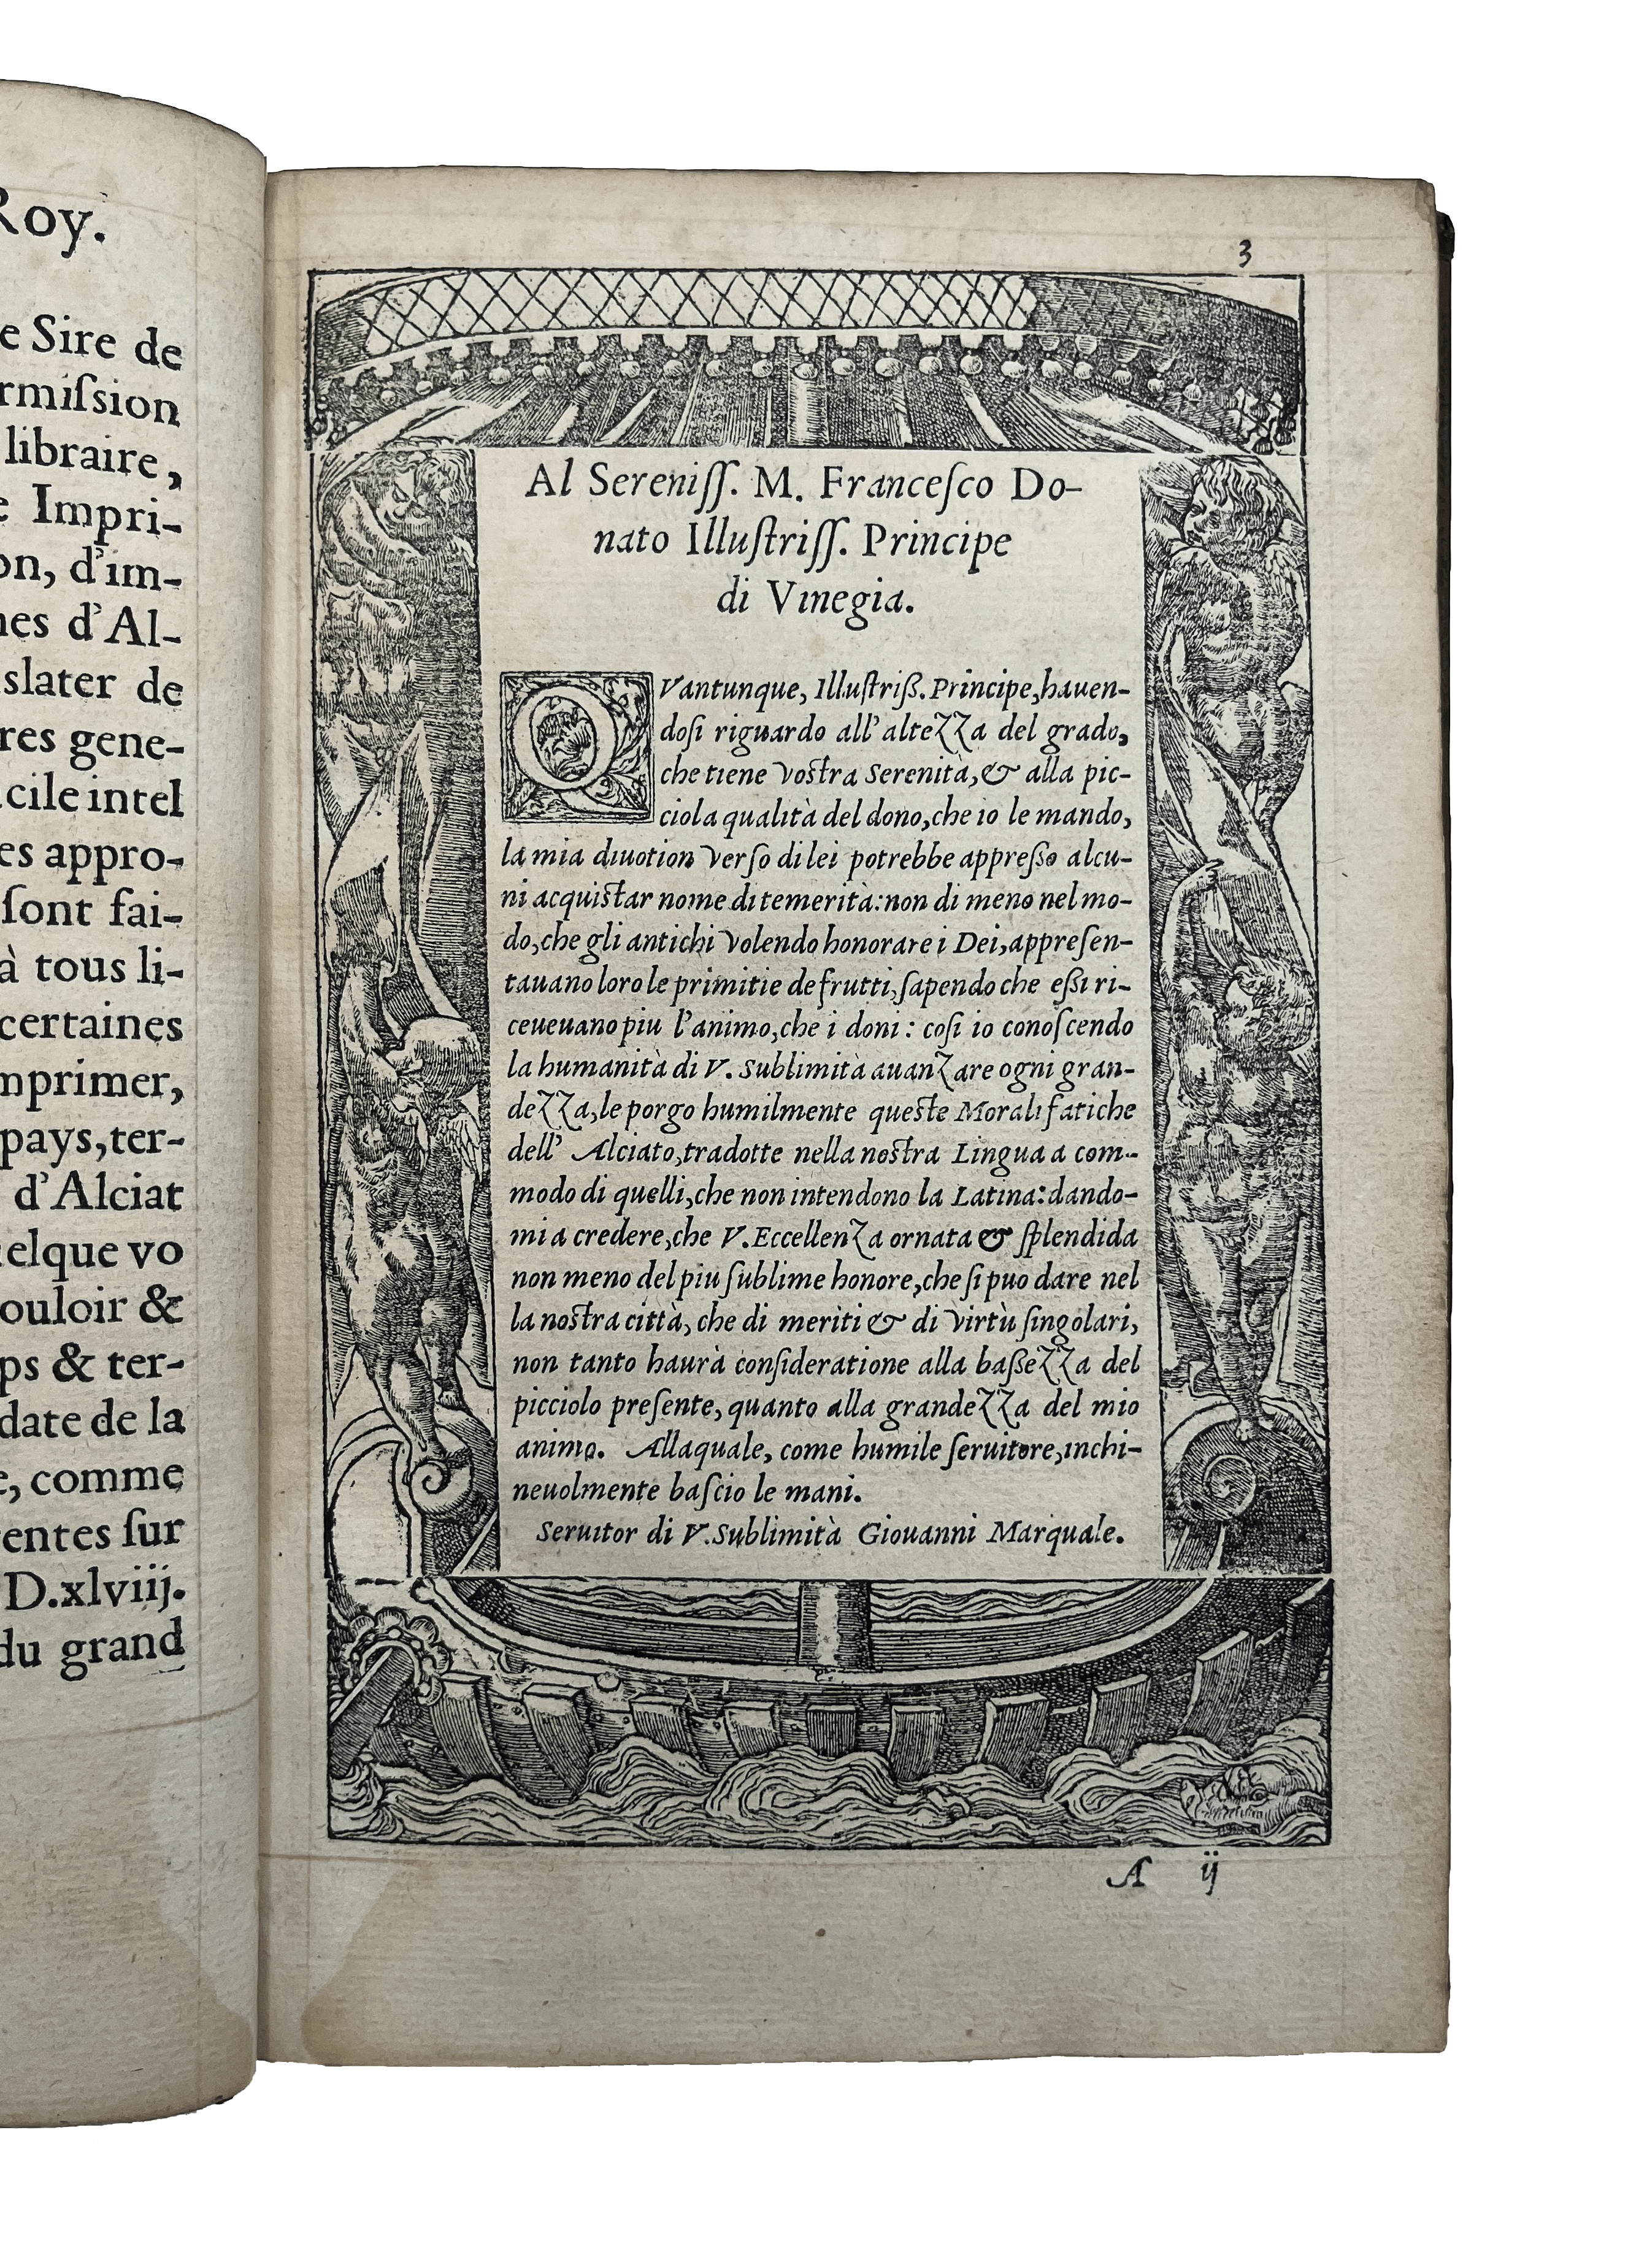 Roy.
e Sire de
rmiſsion
libraire,
e Impri-
on, d'im-
nes d'Al-
slater de
res gene-
cile intel
es appro-
ſont fai-
à tous li-
certaines
mprimer,
pays, ter-
d'Alciat
elque vo
ouloir &
ps & ter-
date de la
e, comme
entes ſur
D.xlviij.
du grand
3
Al Sereniſſ. M. Franceſco Do-
nato Illuſtriſſ. Principe
di Vinegia.
QVantunque, Illuſtriß. Principe, hauen-
doſi riguardo all' altezza del grado,
che tiene vostra Serenità, & alla pic-
ciola qualità del dono, che io le mando,
la mia diuotion verſo di lei potrebbe appreßo alcu-
ni acquistar nome di temerità: non di meno nel mo-
do, che gli antichi volendo honorare i Dei, appreſen-
tauano loro le primitie de frutti, ſapendo che eßi ri-
ceueuano piu l'animo, che i doni: coſi io conoſcendo
la humanità di V. Sublimità auanzare ogni gran-
dezza, le porgo humilmente queste Morali fatiche
dell' Alciato, tradotte nella nostra Lingua a com-
modo di quelli, che non intendono la Latina: dando-
mi a credere, che V. Eccellenza ornata & ſplendida
non meno del piu ſublime honore, che ſi puo dare nel
la nostra città, che di meriti & di virtù ſingolari,
non tanto haurà conſideratione alla baßezza del
picciolo preſente, quanto alla grandezza del mio
animo. Allaquale, come humile ſeruitore, inchi-
neuolmente baſcio le mani.
Seruitor di V. Sublimità Giouanni Marquale.
A ij